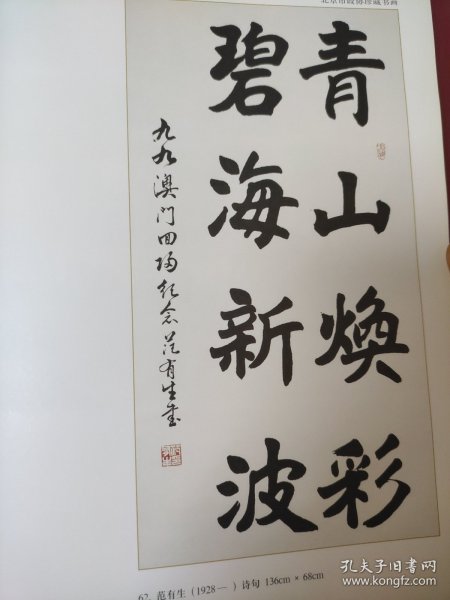 北京市政协珍藏书画
青山焕彩
碧海新波
九九澳门回归纪念范有生书
62. 范有生（1928— ）诗句 136cm × 68cm
孔夫子旧书网
www.kongfz.com